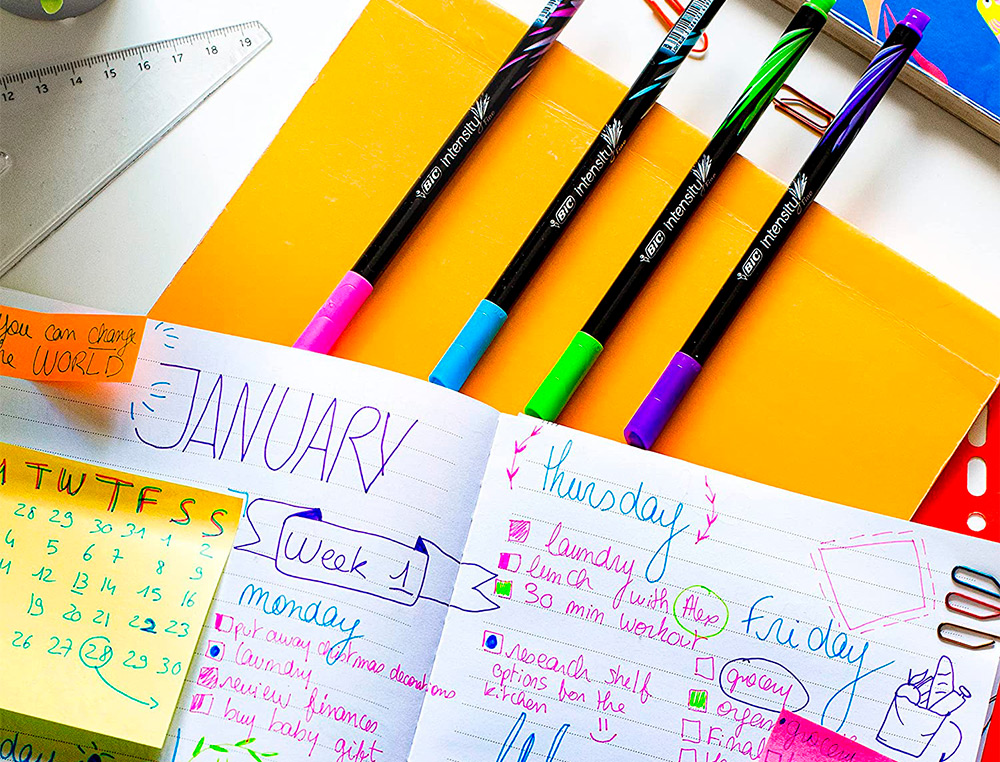 12 13 14 15 16 17 18 19
BIC intensity Fine
BIC intensity Fine
BIC intensity Fine
BIC intensity Fine
you can change
WORLD
JANUARY
T W T F S S
28 29 30 31 1 2
4 5 6 7 8 9
12 13 14 15 16
19 20 21 22 23
26 27 28 29 30
Week 1
monday
put away christmas decorations
laundry
review finances
buy baby gift
thursday
laundry
lunch with Alex
30 min workout
research shelf
options for the
kitchen
Friday
grocery